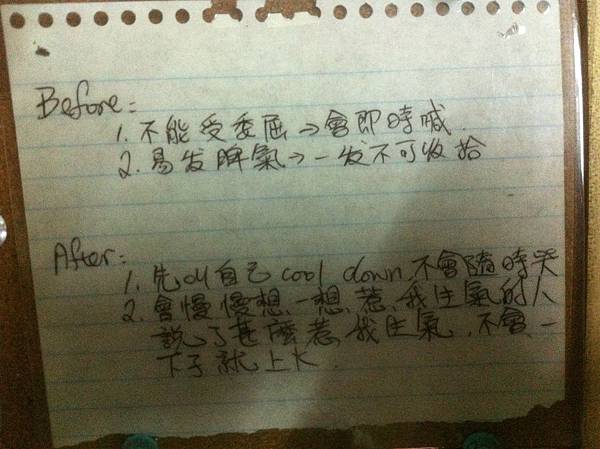 Before:
1. 不能受委屈→會即時喊
2. 易发脾氣→一发不可收拾
After:
1. 先叫自己 cool down, 不會隨時哭
2. 會慢慢想一想, 惹我生氣的人
說了甚麼惹我生氣, 不會一
下子就上火.